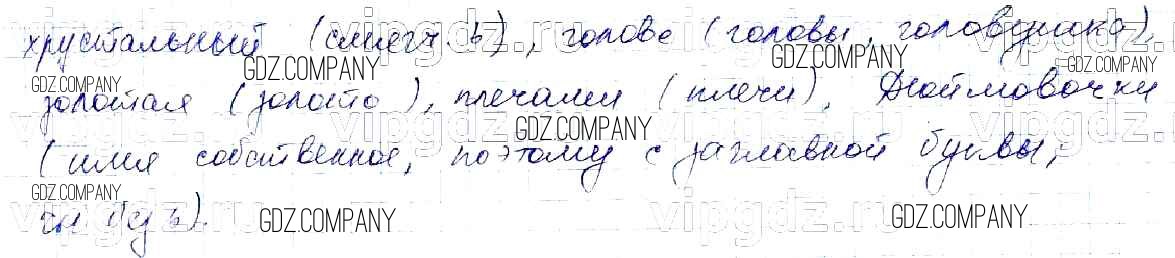 хрустальный (смягч. ь), голове (головы, головушка),
золотая (золото), плечами (плечи), Дюймовочки
(имя собственное, поэтому с заглавной буквы,
GDZ.COMPANY
GDZ.COMPANY
GDZ.COMPANY
GDZ.COMPANY
GDZ.COMPANY
GDZ.COMPANY
GDZ.COMPANY
GDZ.COMPANY
vipgdz.ru
vipgdz.ru
vipgdz.ru
vipgdz.ru